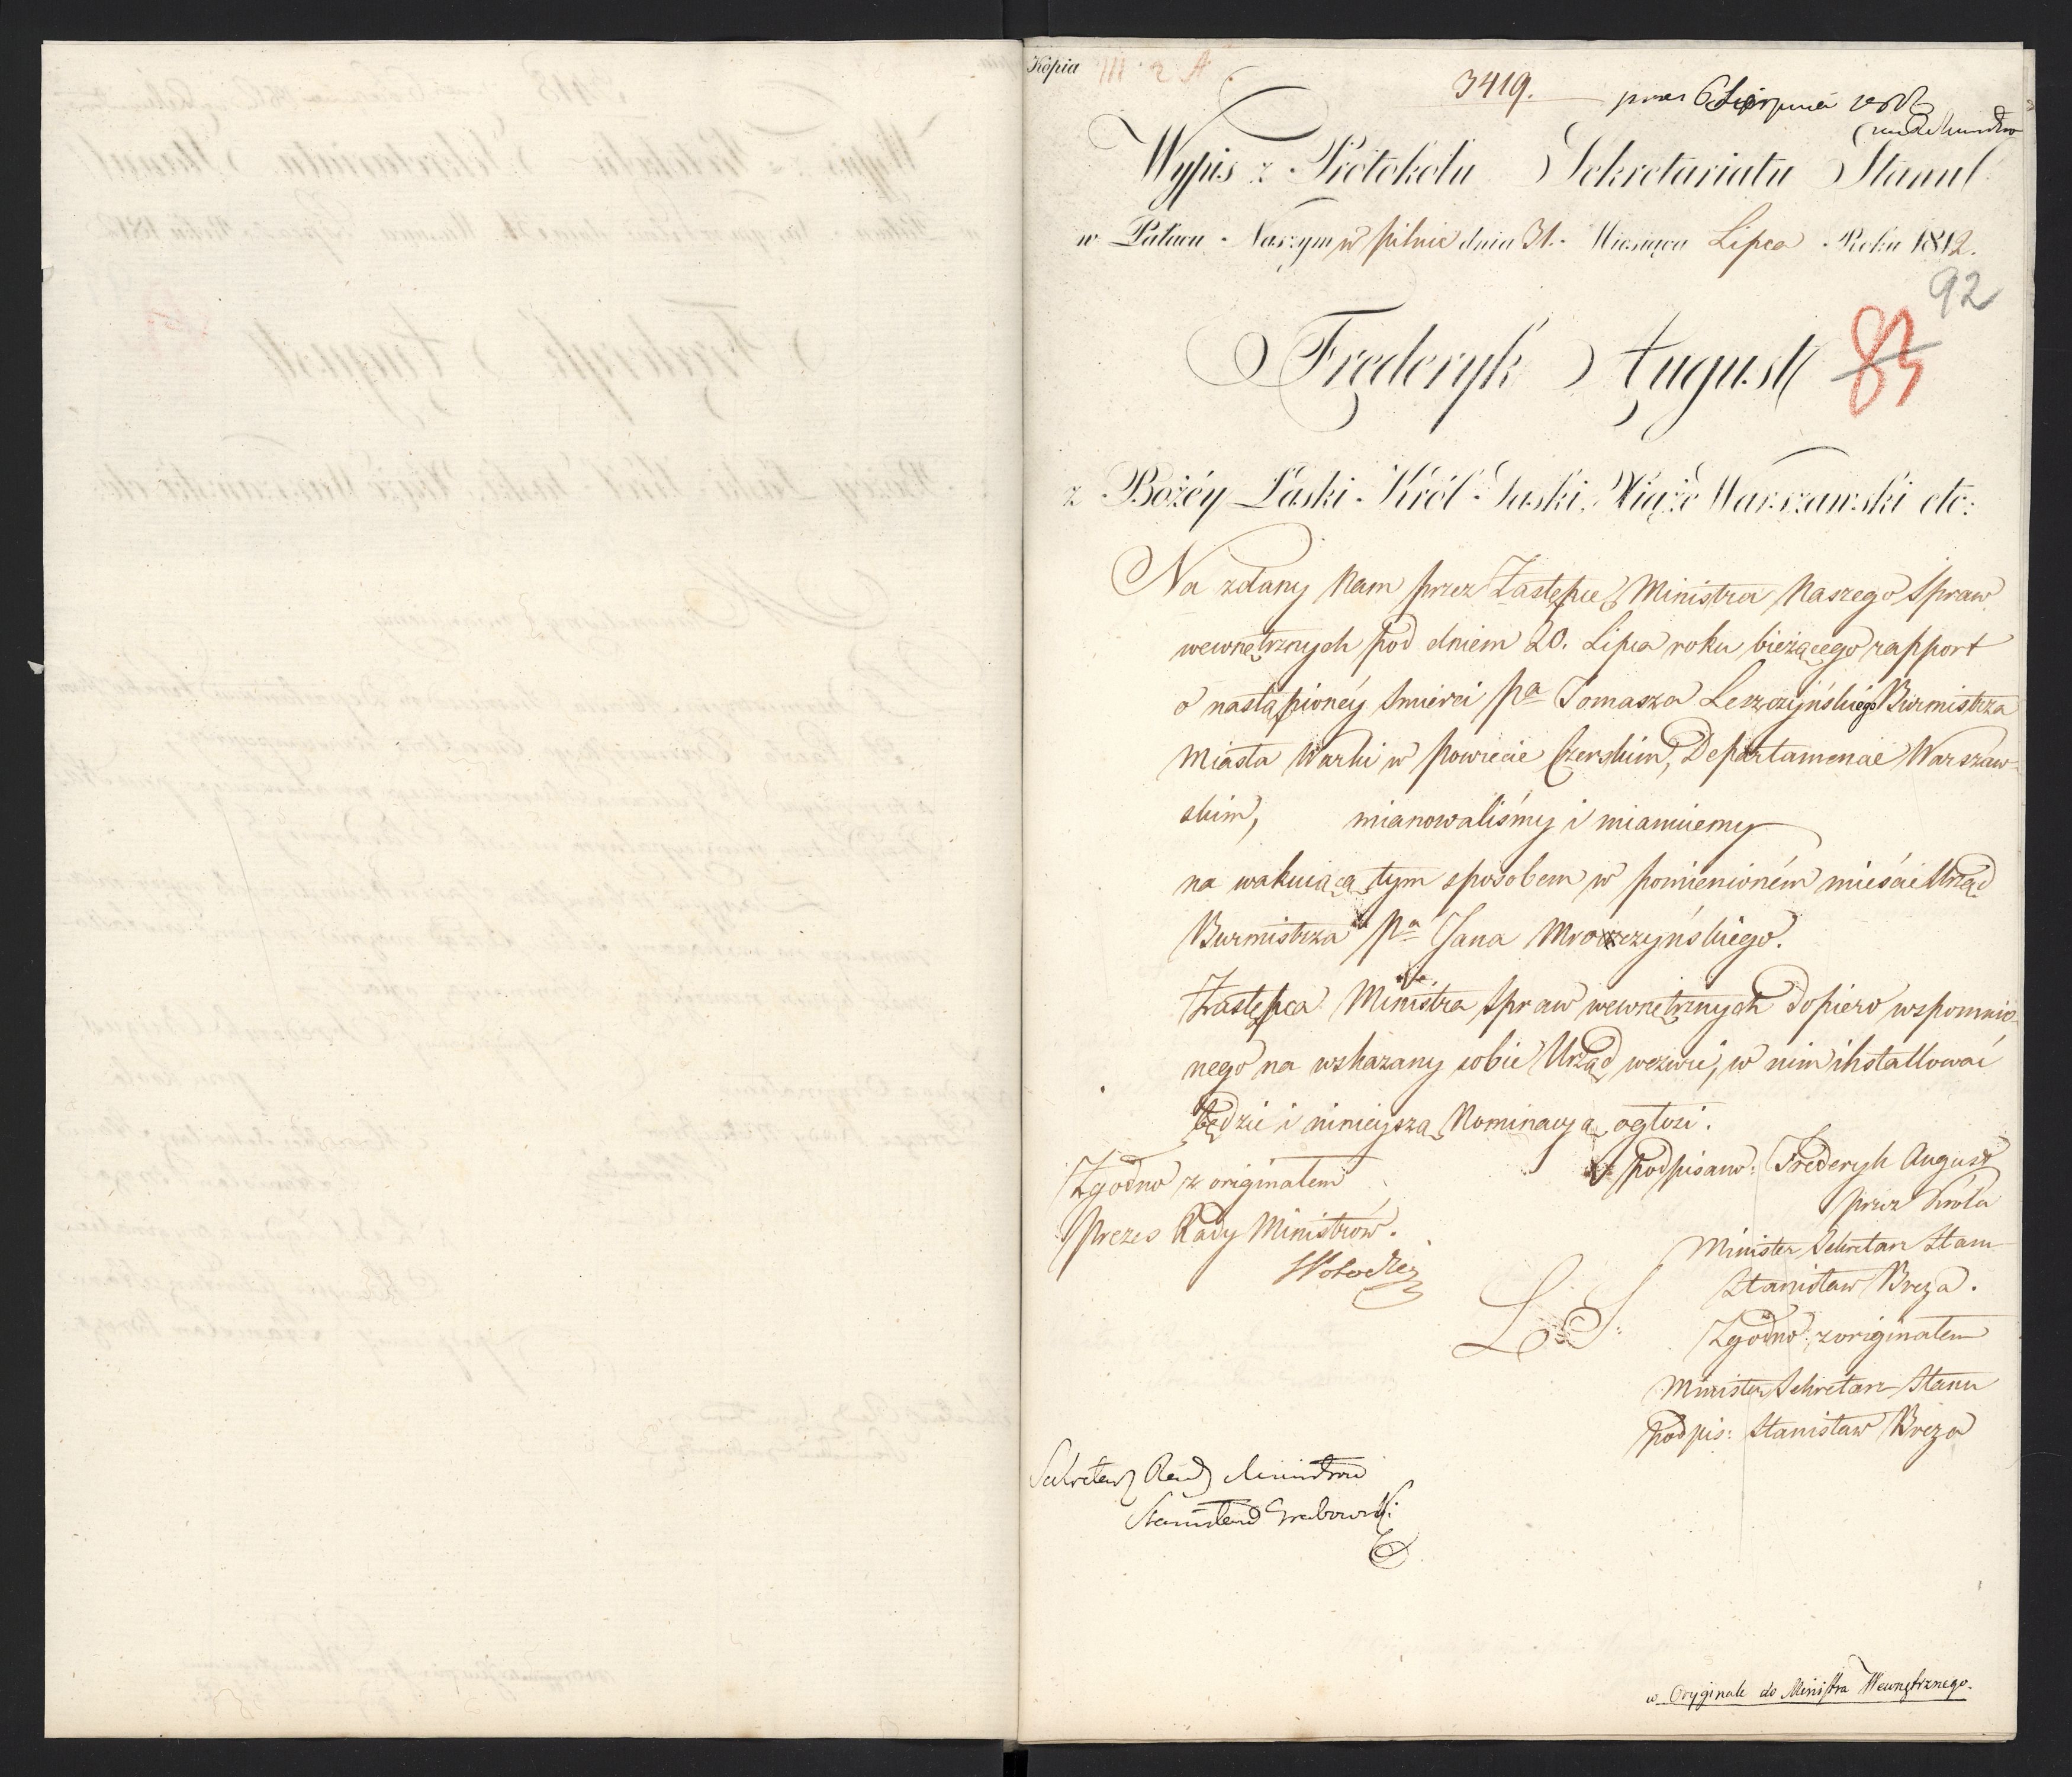 Kopia
3419.
Wypis z Protokołu Sekretariatu Stanu
w Pałacu Naszym w Pilnic dnia 31. Miesiąca Lipca Roku 1812.
92
83
Frederyk August
z Bożéy Łaski Król Saski, Xiąże Warszawski etc:
Na zdany Nam przez Zastępcę Ministra Naszego Spraw
wewnętrznych pod dniem 20. Lipca roku bieżącego rapport
o nastąpionéy śmierci Pa Tomasza Leszczyńskiego Burmistrza
Miasta Warki w Powiecie Czerskim, Departamencie Warszaw-
skim, mianowaliśmy i mianuiemy
na wakuiącą tym sposobem w pomienioném mieście Urząd
Burmistrza Pa Jana Mroczyńskiego.
Zastępca Ministra Spraw wewnętrznych dopiero wspomnio-
nego na wskazany sobie Urząd wezwie, w nim installować
będzie i ninieyszą Nominacyą ogłosi.
podpisano: Frederyk August
przez Króla
Minister Sekretarz Stanu
Stanisław Breza.
Zgodno z originałem
Prezes Rady Ministrów.
L. S.
Zgodno z originałem
Minister Sekretarz Stanu
podpis: Stanisław Breza
Sekretarz Rady Ministrów
Stanisław Grabowski
w Oryginale do Ministra Wewnętrznego.